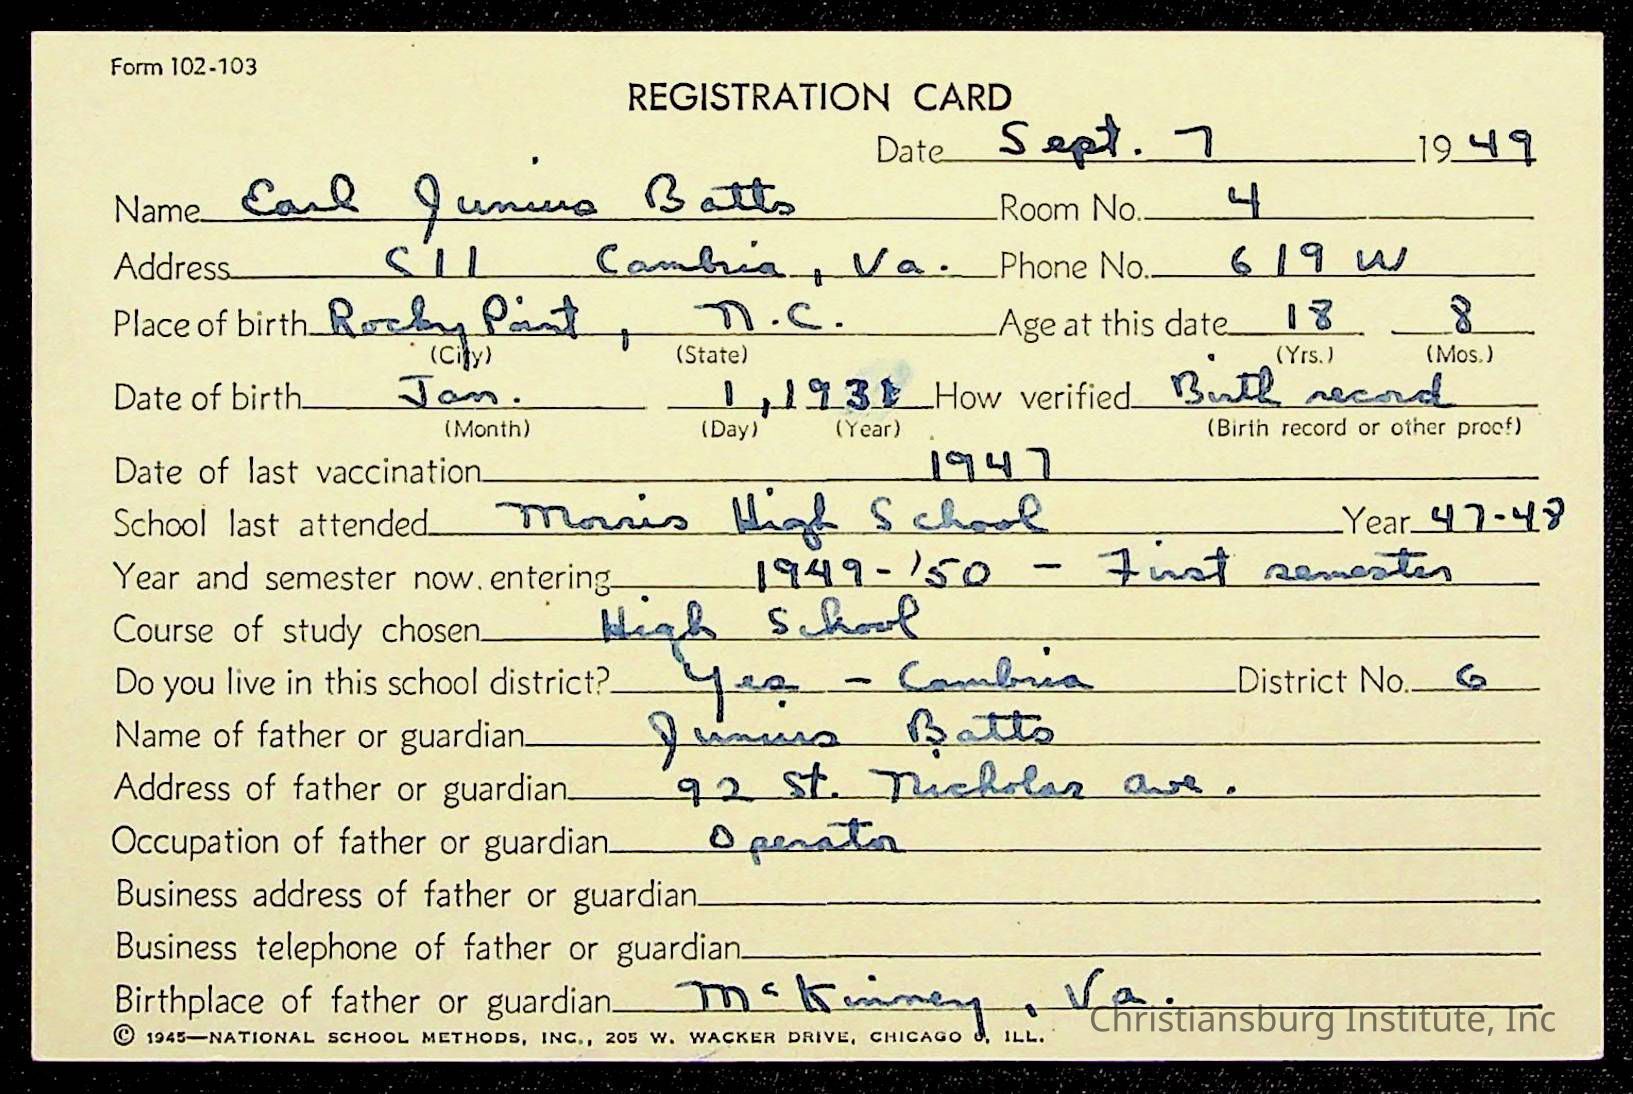 Form 102-103
REGISTRATION CARD
Date Sept. 7 1949
Name Earl Junius Batts Room No. 4
Address 511 Cambria, Va. Phone No. 619 W
Place of birth Rocky Point, N.C. Age at this date 18 8
(City) (State) (Yrs.) (Mos.)
Date of birth Jan. 1, 1931 How verified Birth record
(Month) (Day) (Year) (Birth record or other proof)
Date of last vaccination 1947
School last attended Morris High School Year 47-48
Year and semester now entering 1949-'50 - First semester
Course of study chosen High School
Do you live in this school district? Yes - Cambria District No. 6
Name of father or guardian Junius Batts
Address of father or guardian 92 St. Nicholas Ave.
Occupation of father or guardian Operator
Business address of father or guardian
Business telephone of father or guardian
Birthplace of father or guardian McKinney, Va.
Christiansburg Institute, Inc
© 1945—NATIONAL SCHOOL METHODS, INC., 205 W. WACKER DRIVE, CHICAGO 6, ILL.